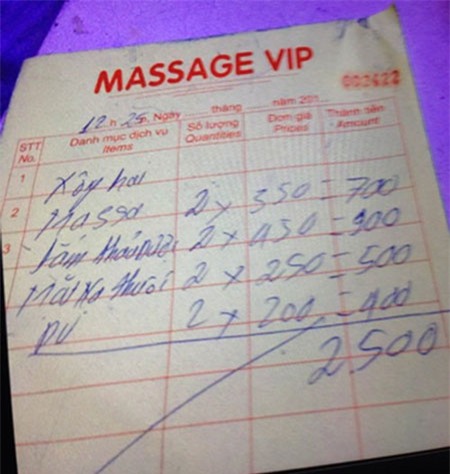 MASSAGE VIP
002422
12 h 25, Ngày tháng năm 201
STT No. Danh mục dịch vụ Items Số lượng Quantities Đơn giá Prices Thành tiền Amount
1 Xông hơi
2 Massa 2 x 350 = 700
3 Tắm thảo dược 2 x 450 = 900
Mặt nạ 2 x 250 = 500
DV 2 x 200 = 400
2500